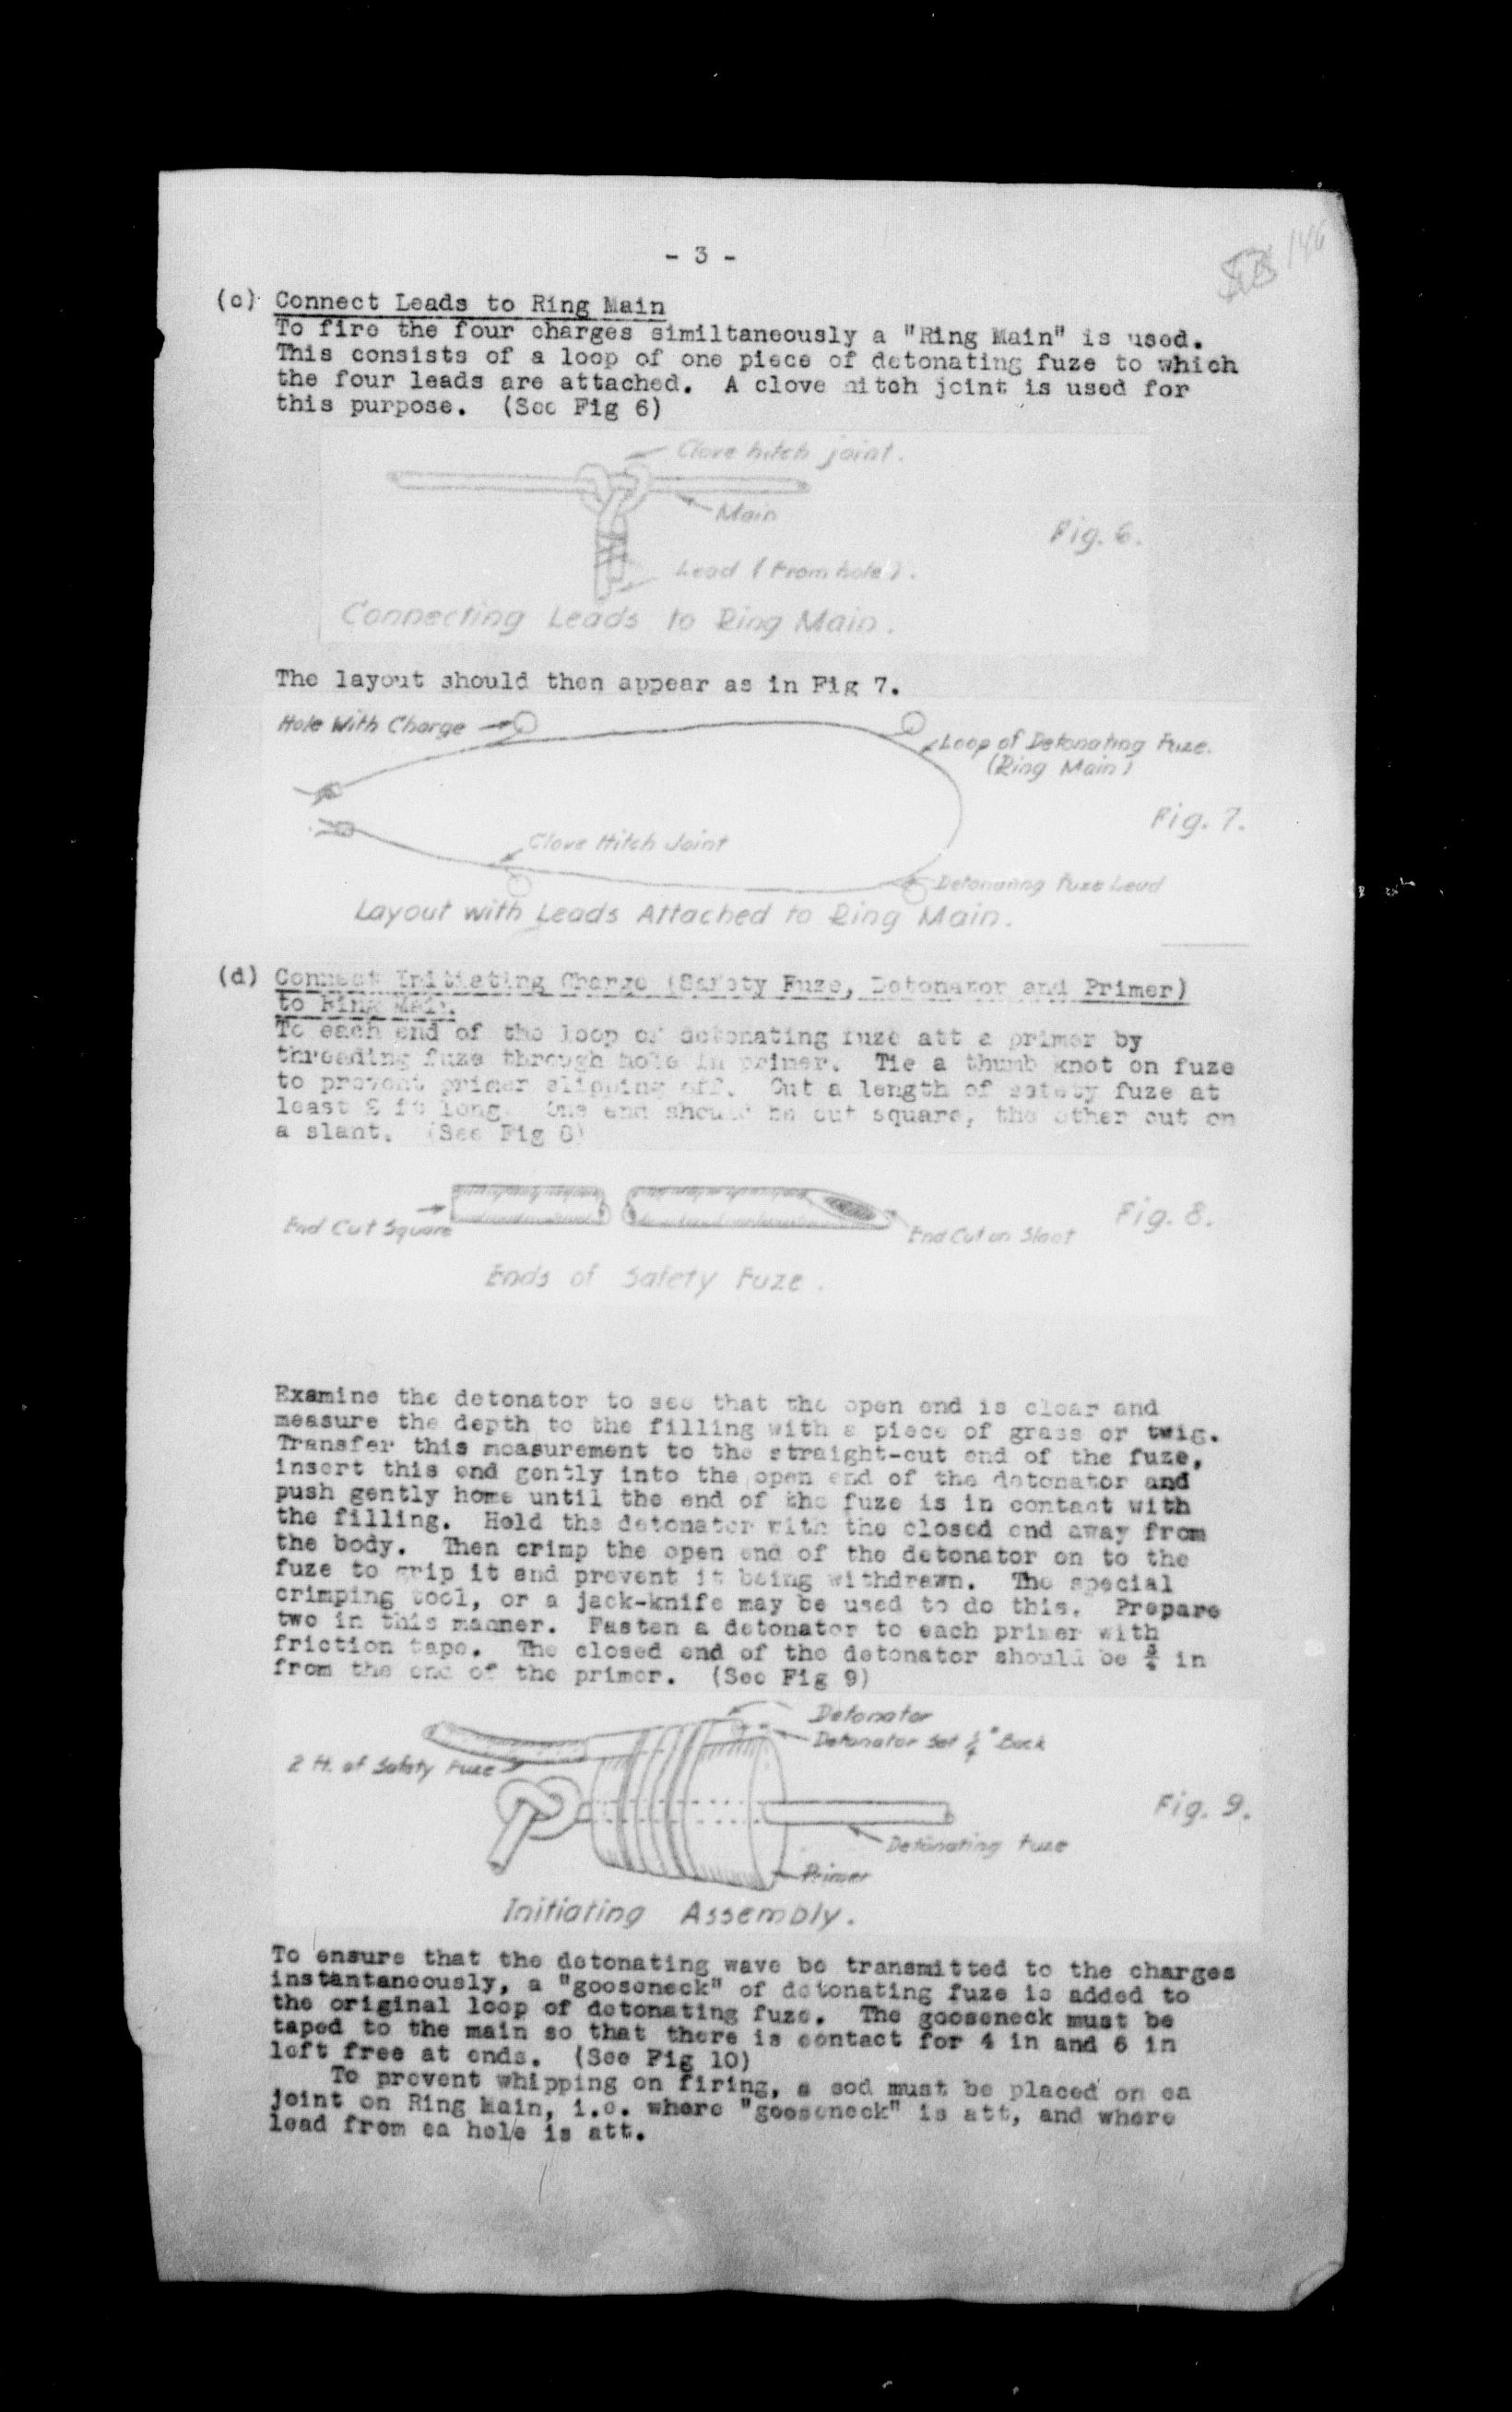 - 3 -
146
(c) Connect Leads to Ring Main
To fire the four charges similtaneously a "Ring Main" is used.
This consists of a loop of one piece of detonating fuze to which
the four leads are attached. A clove hitch joint is used for
this purpose. (See Fig 6)
Clove hitch joint.
Main
Fig. 6.
Lead (From hole).
Connecting Leads to Ring Main.
The layout should then appear as in Fig 7.
Hole With Charge
Loop of Detonating Fuze.
(Ring Main)
Fig. 7.
Clove Hitch Joint
Detonating Fuze Lead
Layout with Leads Attached to Ring Main.
(d) Connect Initiating Charge (Safety Fuze, Detonator and Primer)
to Ring Main.
To each end of the loop of detonating fuze att a primer by
threading fuze through hole in primer. Tie a thumb knot on fuze
to prevent primer slipping off. Cut a length of safety fuze at
least 2 ft long. One end should be cut square, the other cut on
a slant. (See Fig 8)
End Cut Square
End Cut on Slant
Fig. 8.
Ends of Safety Fuze.
Examine the detonator to see that the open end is clear and
measure the depth to the filling with a piece of grass or twig.
Transfer this measurement to the straight-cut end of the fuze,
insert this end gently into the open end of the detonator and
push gently home until the end of the fuze is in contact with
the filling. Hold the detonator with the closed end away from
the body. Then crimp the open end of the detonator on to the
fuze to grip it and prevent it being withdrawn. The special
crimping tool, or a jack-knife may be used to do this. Prepare
two in this manner. Fasten a detonator to each primer with
friction tape. The closed end of the detonator should be in
from the end of the primer. (See Fig 9)
Detonator
Detonator Set Back
2 Ft. of Safety Fuze
Fig. 9.
Detonating Fuze
Primer
Initiating Assembly.
To ensure that the detonating wave be transmitted to the charges
instantaneously, a "gooseneck" of detonating fuze is added to
the original loop of detonating fuze. The gooseneck must be
taped to the main so that there is contact for 4 in and 6 in
left free at ends. (See Fig 10)
To prevent whipping on firing, a sod must be placed on ea
joint on Ring Main, i.e. where "gooseneck" is att, and where
lead from ea hole is att.